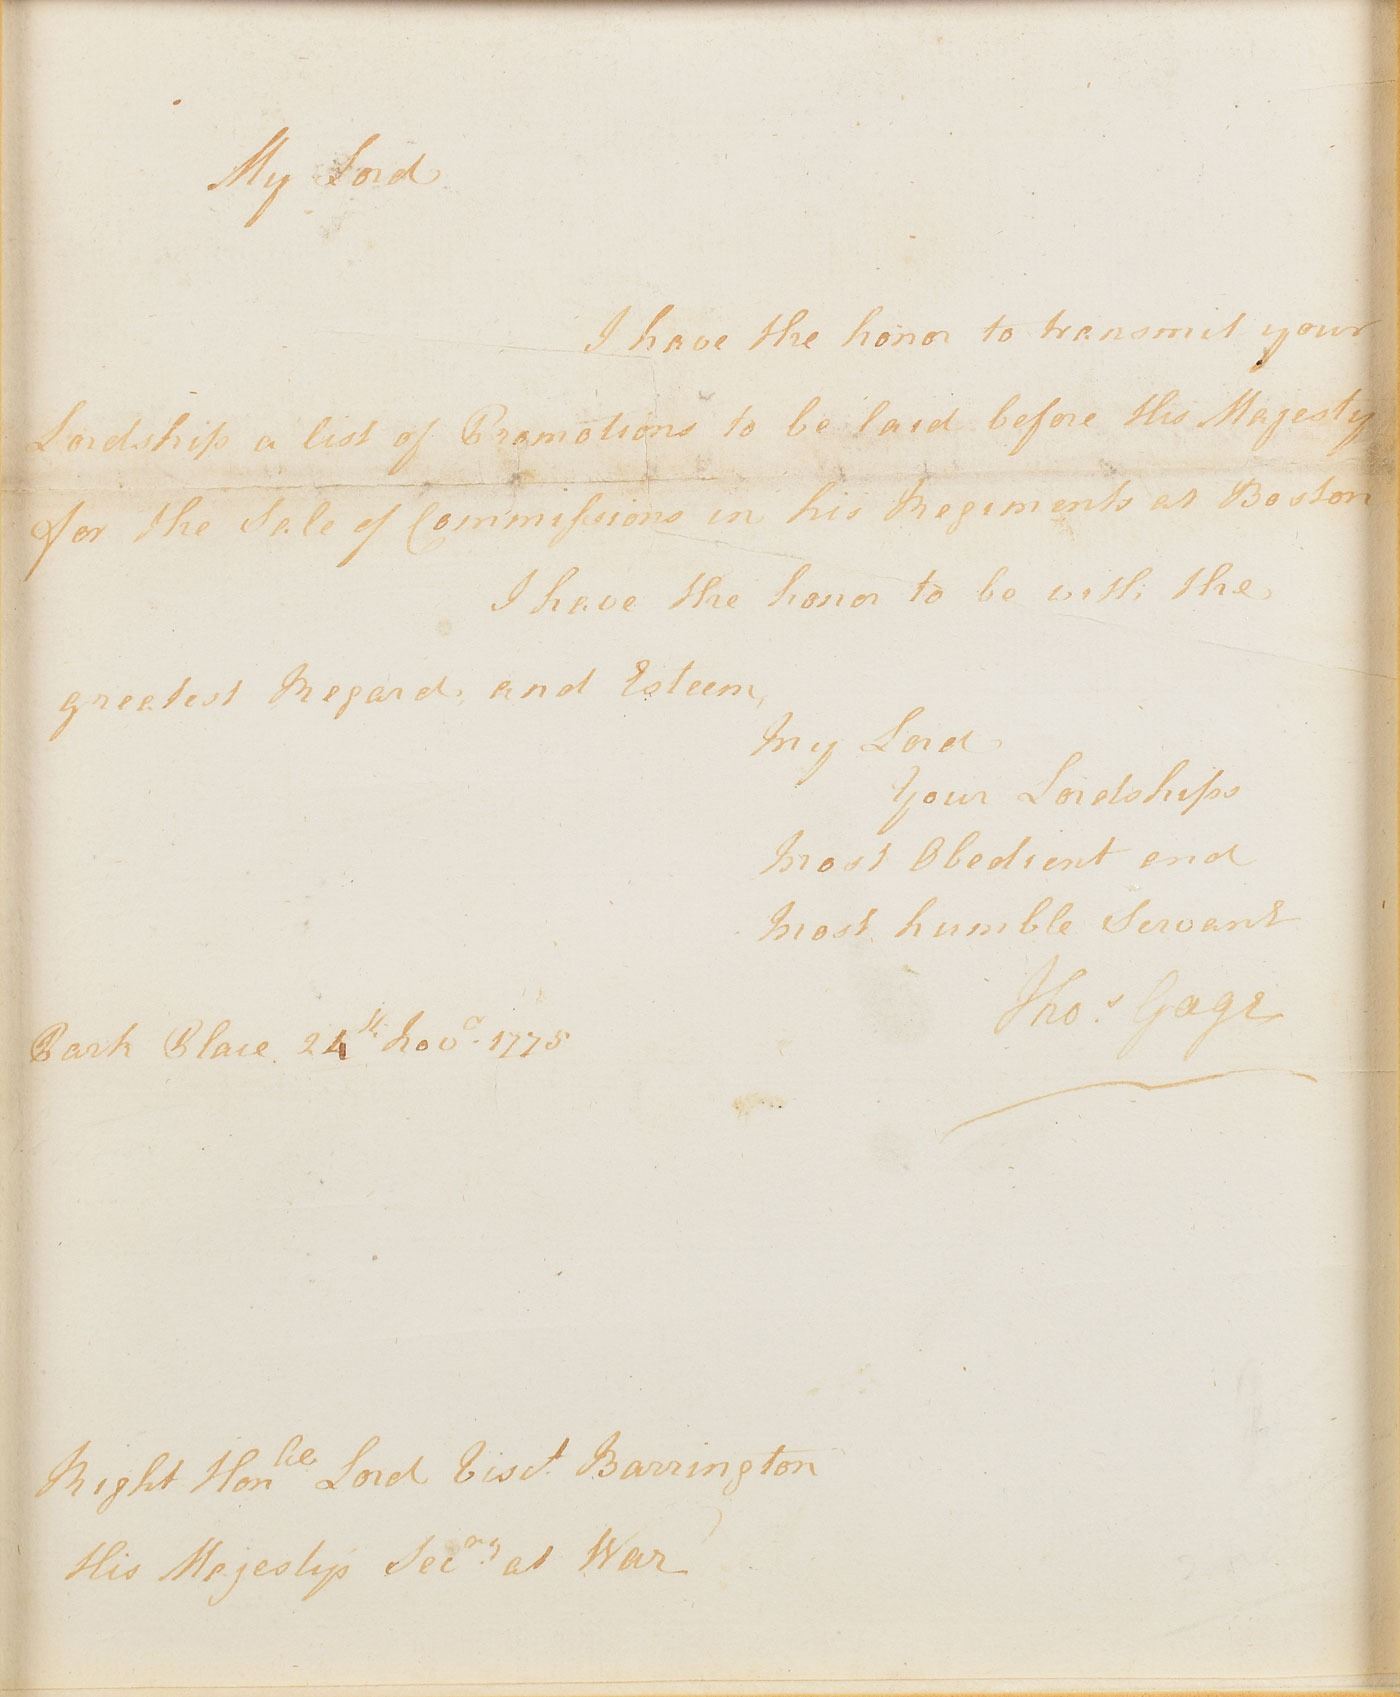 My Lord
I have the honor to transmit your
Lordship a list of Promotions to be laid before His Majesty
for the Sale of Commissions in his Regiments at Boston
I have the honor to be with the
greatest Regard, and Esteem,
My Lord
Your Lordships
Most Obedient and
most humble Servant
Thos. Gage
Park Place 24th Novr. 1775
Right Honble Lord Visct. Barrington
His Majestys Secry. at War